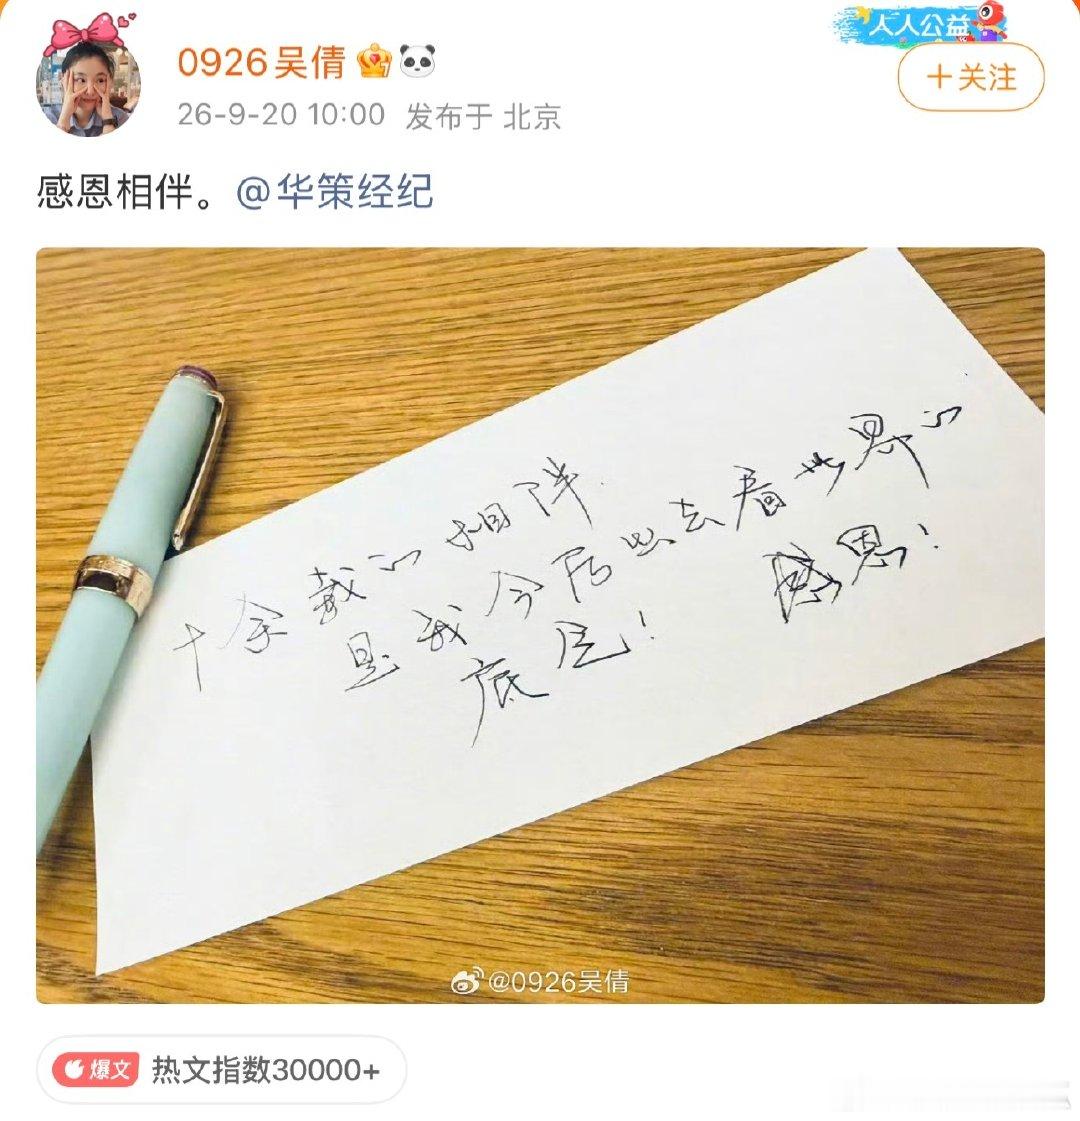 人人公益
0926吴倩
+关注
26-9-20 10:00 发布于 北京
感恩相伴。@华策经纪
十余载的相伴
是我今后出去看世界的
底气!
感恩!
@0926吴倩
爆文 热文指数30000+